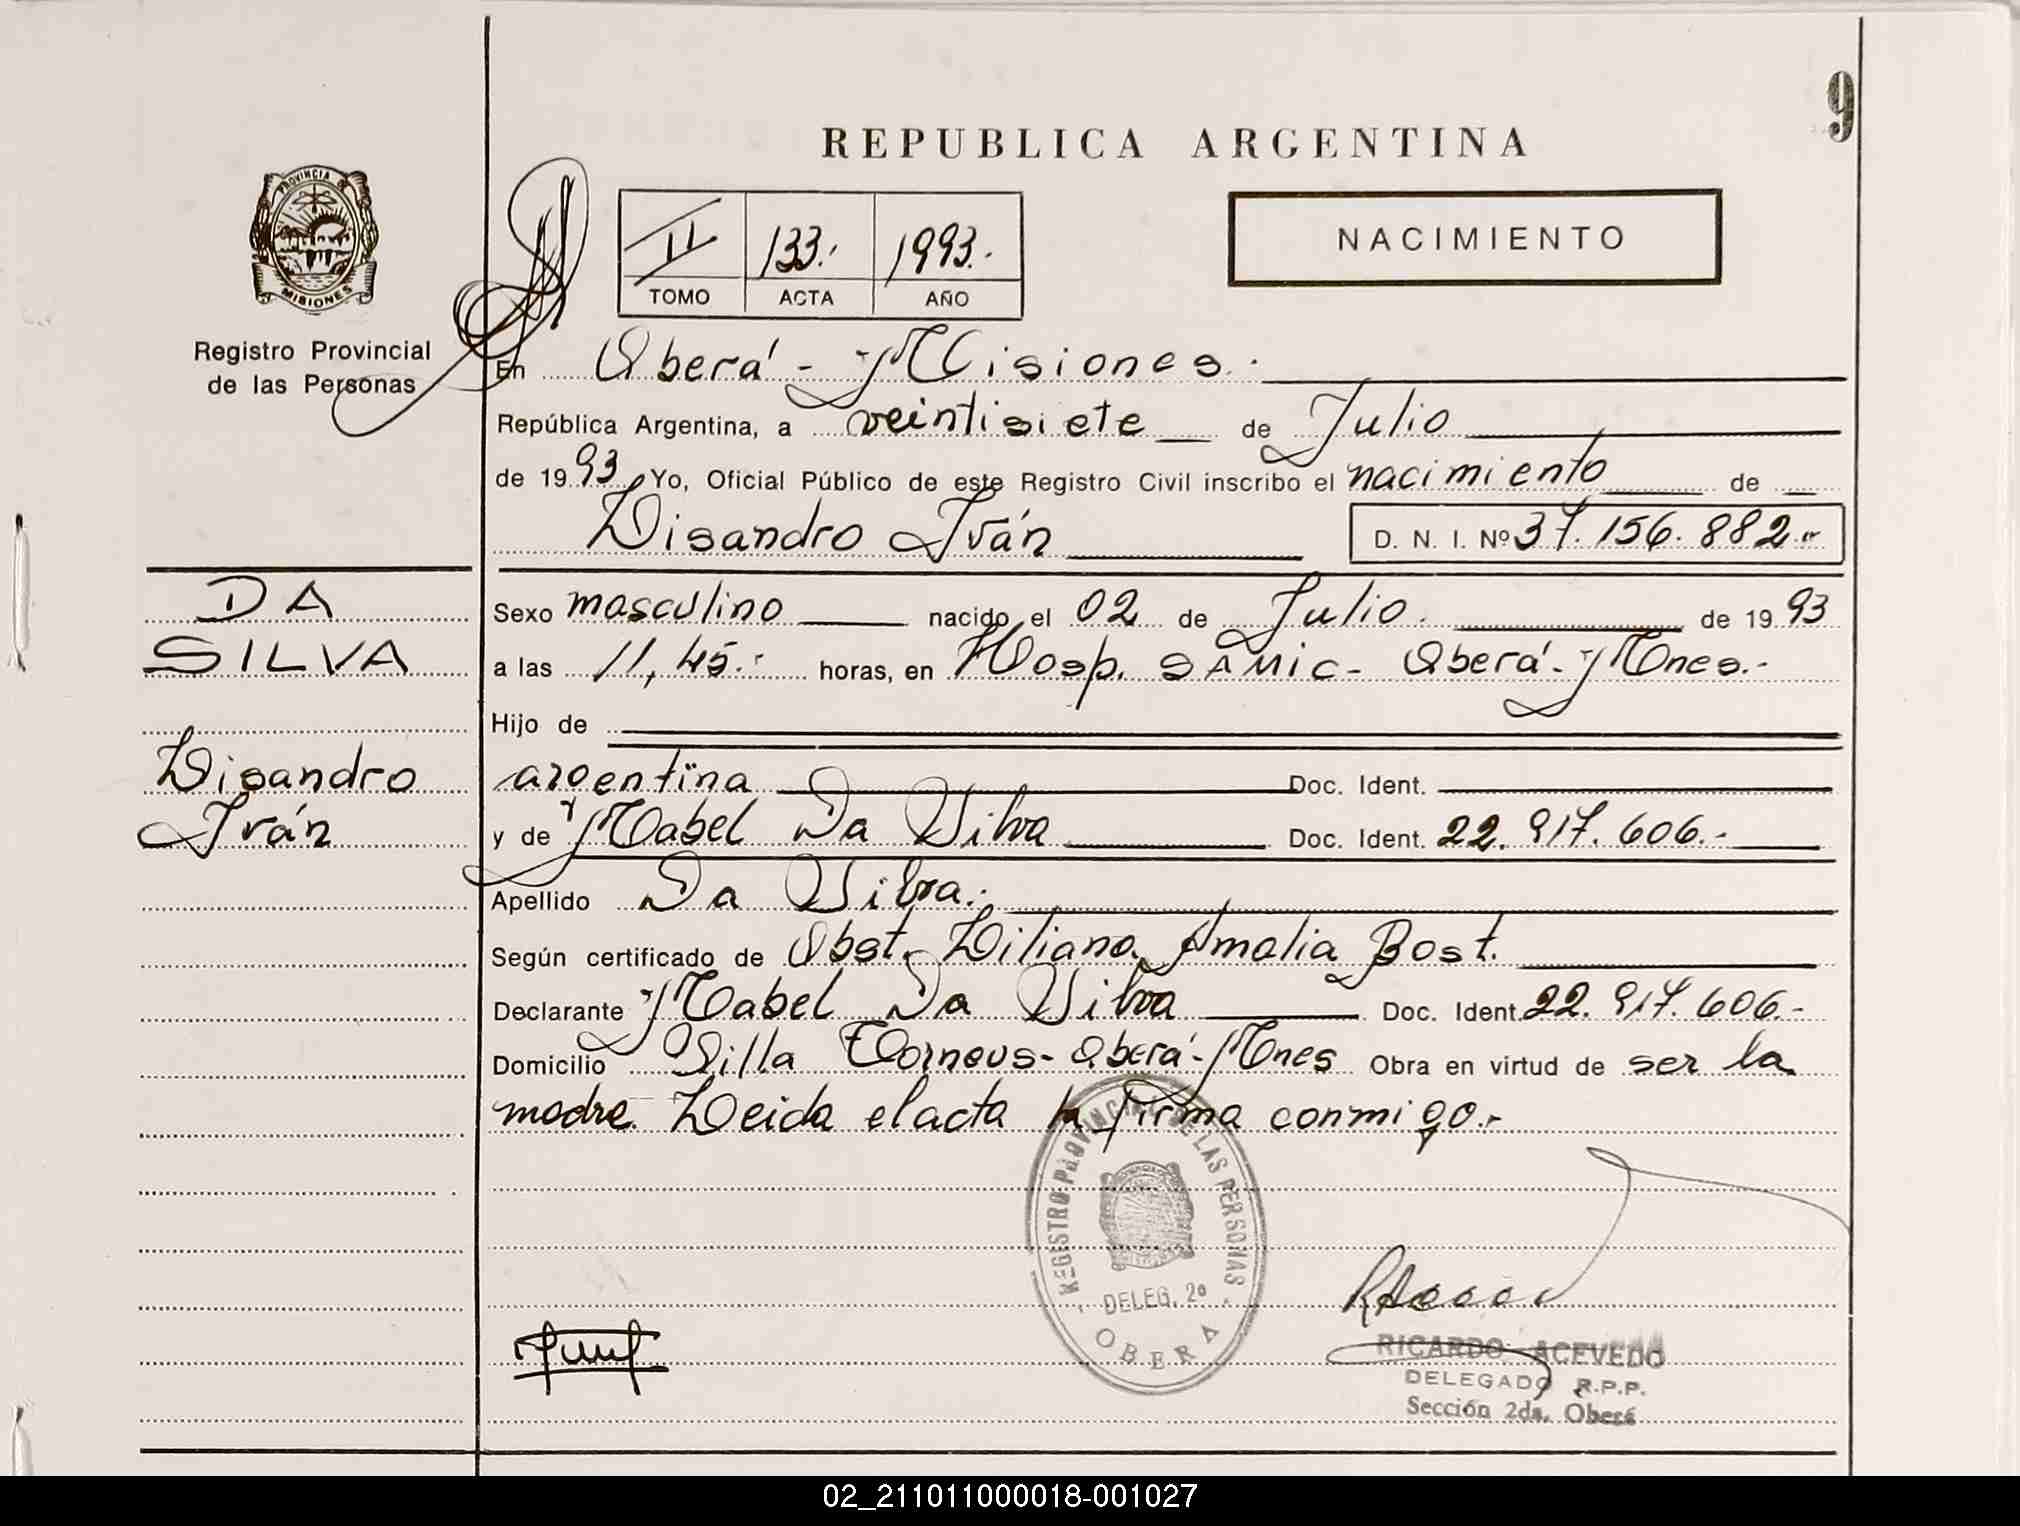 9
REPUBLICA ARGENTINA
PROVINCIA DE
MISIONES
Registro Provincial
de las Personas
II 133.- 1993.-
TOMO ACTA AÑO
NACIMIENTO
En Oberá - Misiones.
República Argentina, a veintisiete de Julio
de 1993 Yo, Oficial Público de este Registro Civil inscribo el nacimiento de
Lisandro Iván D. N. I. Nº 37.156.882.-
DA
SILVA
Lisandro
Iván
Sexo masculino nacido el 02 de Julio. de 1993
a las 11,45.- horas, en Hosp. SAMIC - Oberá - Mnes.-
Hijo de
argentina Doc. Ident.
y de Mabel Da Silva Doc. Ident. 22.917.606.-
Apellido Da Silva.
Según certificado de Obst. Liliana Amalia Bost.
Declarante Mabel Da Silva Doc. Ident. 22.917.606.-
Domicilio Villa Torneus - Oberá - Mnes Obra en virtud de ser la
madre. Leida el acta la firma conmigo.-
REGISTRO PROVINCIAL DE LAS PERSONAS
DELEG. 2º
OBERA
RICARDO ACEVEDO
DELEGADO R.P.P.
Sección 2da. Oberá
02_211011000018-001027